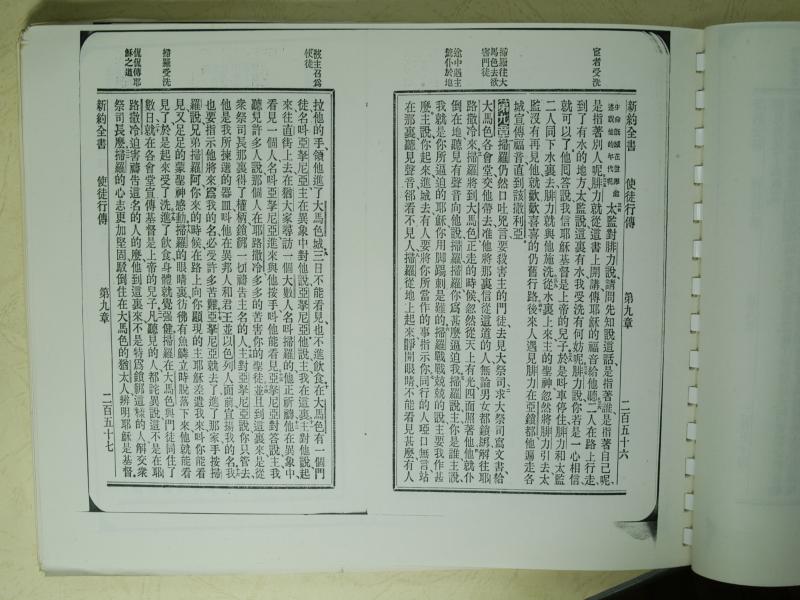 宦者受洗
掃羅往大
馬色去欲
害門徒
途中遇主
驚仆於地
新約全書 使徒行傳 第九章 二百五十六
太監對腓力說請問先知說這話是指著誰是指著自己呢
是指著別人呢腓力就從這書上開講傳耶穌的福音給他聽二人在路上行走
到了有水的地方太監說這裏有水我受洗有何妨呢腓力說你若是一心相信
就可以了他囘答說我信耶穌基督是上帝的兒子於是呌車停住腓力和太監
二人同下水裏去腓力就與他施洗從水裏上來主的聖神忽然將腓力引去太
監沒有再見他就歡歡喜喜的仍舊行路後來人遇見腓力在亞鎖都他遍走各
城宣傳福音直到該撒利亞
第九章掃羅仍然口吐兇言要殺害主的門徒去見大祭司求大祭司寫文書給
大馬色各會堂交他帶去准他將那裏信從這道的人無論男女都鎖綁解往耶
路撒冷來掃羅將到大馬色正走的時候忽然從天上有光四面照著他他就仆
倒在地聽見有聲音向他說掃羅掃羅你爲甚麼逼迫我掃羅說主你是誰主說
我就是你所逼迫的耶穌你用脚踢刺是難的掃羅戰戰兢兢的說主要我作甚
麼主說你起來進城去有人要將你所當作的事指示你同行的人啞口無言站
在那裏聽見聲音卻看不見人掃羅從地上起來睜開眼睛不能看見甚麼有人
被主召爲
使徒
掃羅受洗
侃侃傳耶
穌之道
拉他的手領他進了大馬色城三日不能看見也不進飲食在大馬色有一個門
徒名呌亞拏尼亞主在異象中對他說亞拏尼亞他說主我在這裏主對他說起
來往直街上去在猶大家尋訪一個大數人名呌掃羅的他正祈禱他在異象中
看見一個人名呌亞拏尼亞進來與他按手呌他能看見亞拏尼亞對答說主我
聽見許多人說那個人在耶路撒冷多多的苦害你的聖徒並且到這裏來是從
衆祭司長那裏得了權柄鎖綁一切禱告主名的人主對亞拏尼亞說你只管去
他是我所揀選的器皿呌他在異邦人和君王並以色列人面前宣揚我的名我
也要指示他將來爲我的名必受許多苦難亞拏尼亞就去了進了那家手按掃
羅說兄弟掃羅阿你來的時候在路上向你顯現的主耶穌差遣我來呌你能看
見又足足的蒙聖神感動掃羅的眼睛裏彷彿有魚鱗立時脫落下來他就能看
見了於是起來受了洗進了飲食身體就覺强健掃羅在大馬色與門徒同住了
數日就在各會堂宣傳基督是上帝的兒子凡聽見的人都詫異說這不是在耶
路撒冷迫害禱告這名的人的麼他到這裏來不是特爲鎖綁這樣的人解交衆
祭司長麼掃羅的心志更加堅固駁倒住在大馬色的猶太人辨明耶穌是基督
新約全書 使徒行傳 第九章 二百五十七